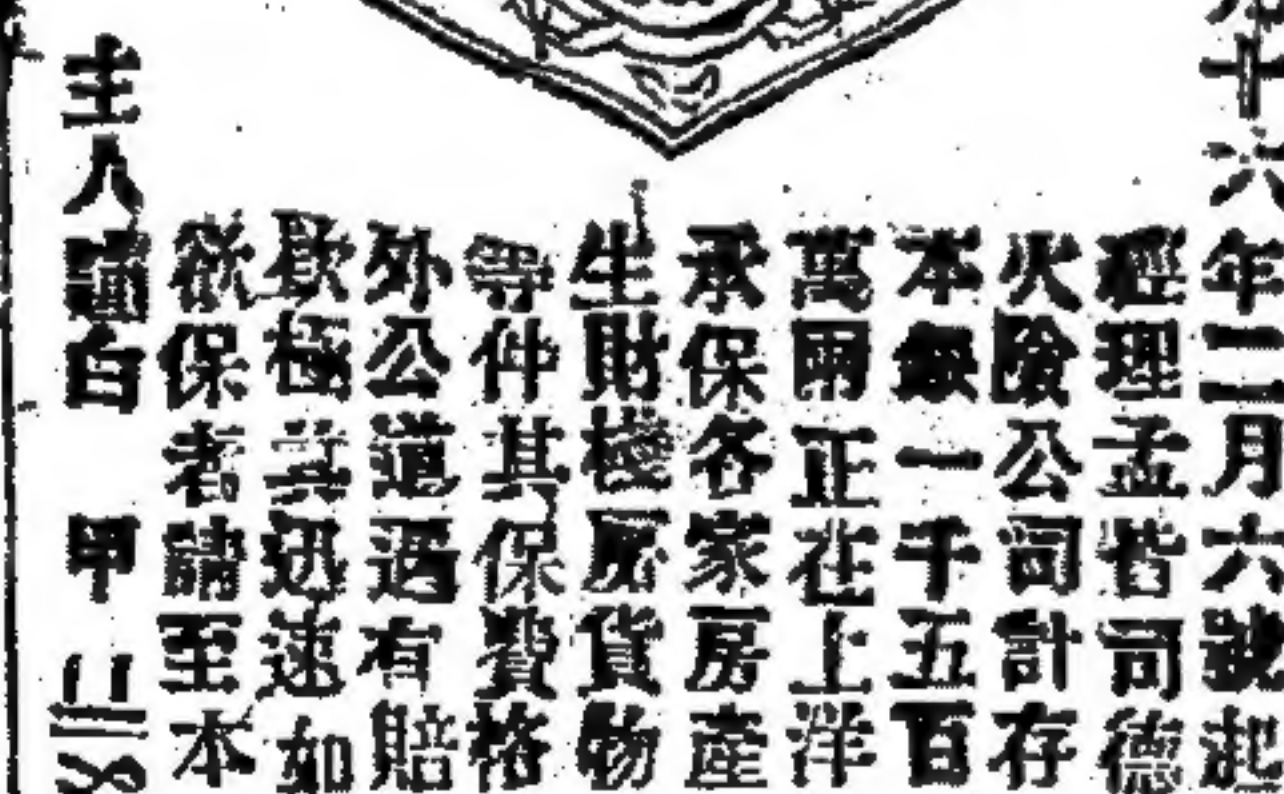 十六年二月六號起
經理孟皆司德
火險公司計存
本銀一千五百
萬兩正在上洋
承保各家房產
生財棧房貨物
等件其保費格
外公道遇有賠
欵極其迅速如
欲保者請至本
主人謹白 甲